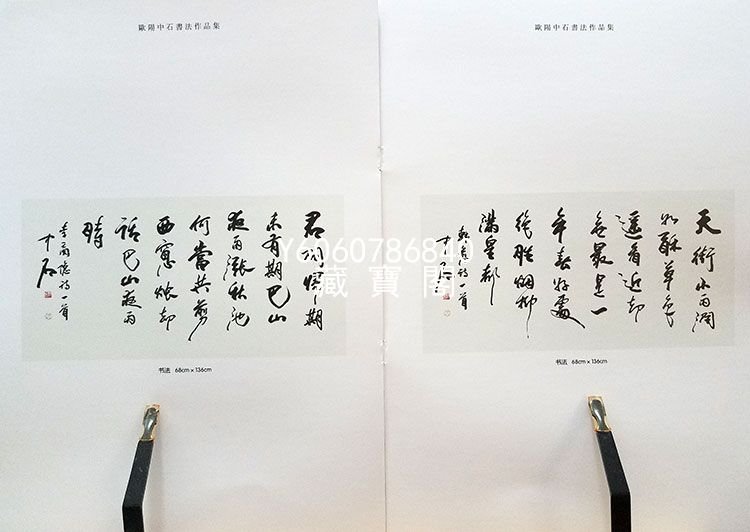 歐陽中石書法作品集
君问歸期
未有期巴山
夜雨漲秋池
何當共剪
西窗燭却
話巴山夜雨
時
李商隐詩一首
中石
书法 68cm x 136cm
歐陽中石書法作品集
天街小雨潤
如酥草色
遥看近却
無最是一
年春好處
絕勝烟柳
滿皇都
韓愈詩一首
中石
书法 68cm x 136cm
Y6060786840
藏寶閣